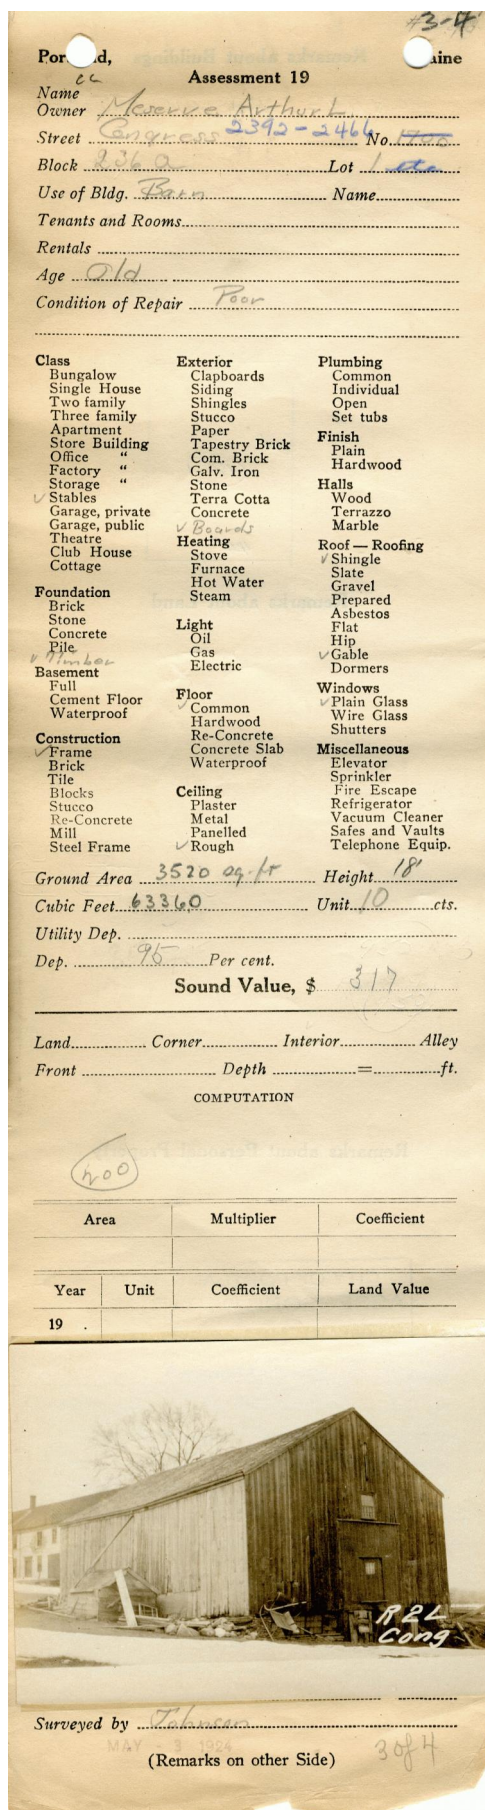 #3-4
Portland, Maine
Assessment 19
Name
Owner Meserve Arthur L
Street Congress 2392-2466 No. 1700
Block 236 a Lot 1
Use of Bldg. Barn Name
Tenants and Rooms
Rentals
Age Old
Condition of Repair Poor
Class
Bungalow
Single House
Two family
Three family
Apartment
Store Building
Office "
Factory "
Storage "
✓ Stables
Garage, private
Garage, public
Theatre
Club House
Cottage
Foundation
Brick
Stone
Concrete
Pile
✓ Timber
Basement
Full
Cement Floor
Waterproof
Construction
✓ Frame
Brick
Tile
Blocks
Stucco
Re-Concrete
Mill
Steel Frame
Exterior
Clapboards
Siding
Shingles
Stucco
Paper
Tapestry Brick
Com. Brick
Galv. Iron
Stone
Terra Cotta
Concrete
✓ Boards
Heating
Stove
Furnace
Hot Water
Steam
Light
Oil
Gas
Electric
Floor
✓ Common
Hardwood
Re-Concrete
Concrete Slab
Waterproof
Ceiling
Plaster
Metal
Panelled
✓ Rough
Plumbing
Common
Individual
Open
Set tubs
Finish
Plain
Hardwood
Halls
Wood
Terrazzo
Marble
Roof — Roofing
✓ Shingle
Slate
Gravel
Prepared
Asbestos
Flat
Hip
✓ Gable
Dormers
Windows
✓ Plain Glass
Wire Glass
Shutters
Miscellaneous
Elevator
Sprinkler
Fire Escape
Refrigerator
Vacuum Cleaner
Safes and Vaults
Telephone Equip.
Ground Area 3520 sq. ft Height 18'
Cubic Feet 63360 Unit 10 cts.
Utility Dep.
Dep. 95 Per cent.
Sound Value, $ 317
Land Corner Interior Alley
Front Depth = ft.
COMPUTATION
400
Area Multiplier Coefficient
Year Unit Coefficient Land Value
19 .
R2L
Cong
Surveyed by Johnson
MAY - 3 1924
3 of 4
(Remarks on other Side)